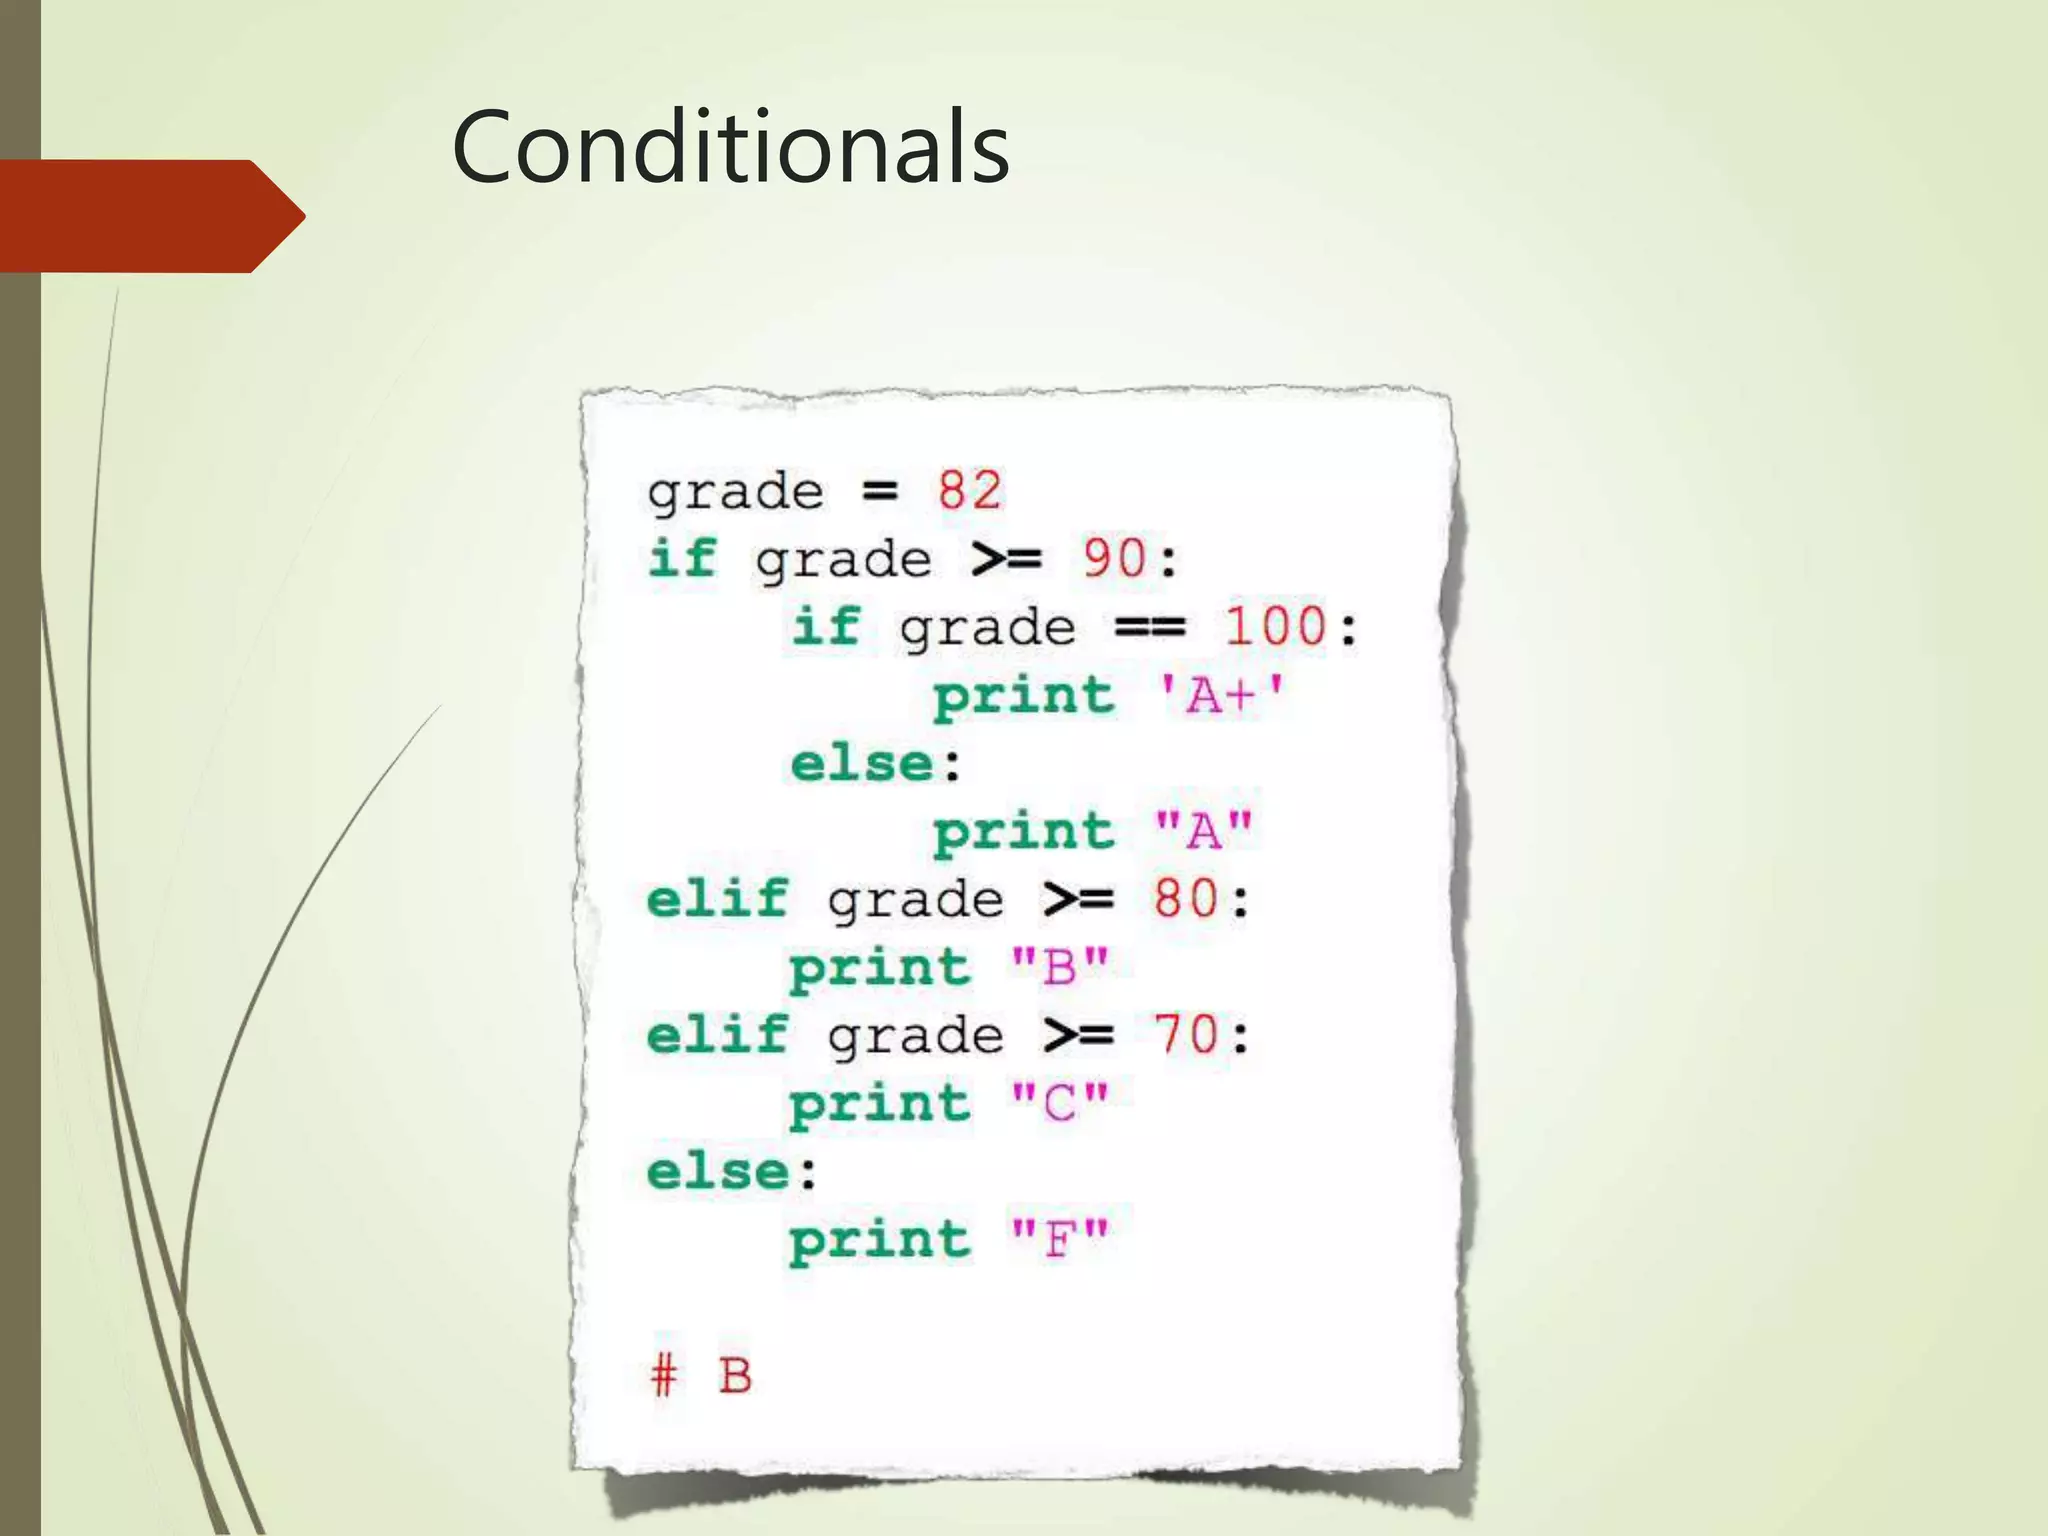 Conditionals
grade = 82
if grade >= 90:
    if grade == 100:
        print 'A+'
    else:
        print "A"
elif grade >= 80:
    print "B"
elif grade >= 70:
    print "C"
else:
    print "F"
# B